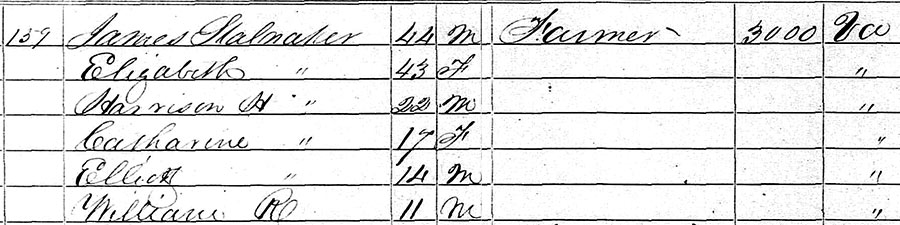 159 James Stalnaker 44 M Farmer 3000 Va
Elizabeth " 43 F "
Harrison H " 22 M "
Catharine " 17 F "
Elliott " 14 M "
William R 11 M "